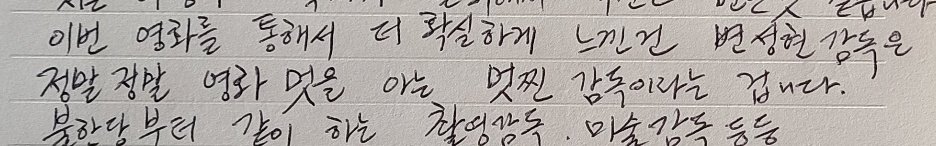 이번 영화를 통해서 더 확실하게 느낀건 변성현 감독은
정말 정말 영화 멋을 아는 멋찐 감독이라는 겁니다.
불한당부터 같이 하는 촬영감독. 미술감독 등등